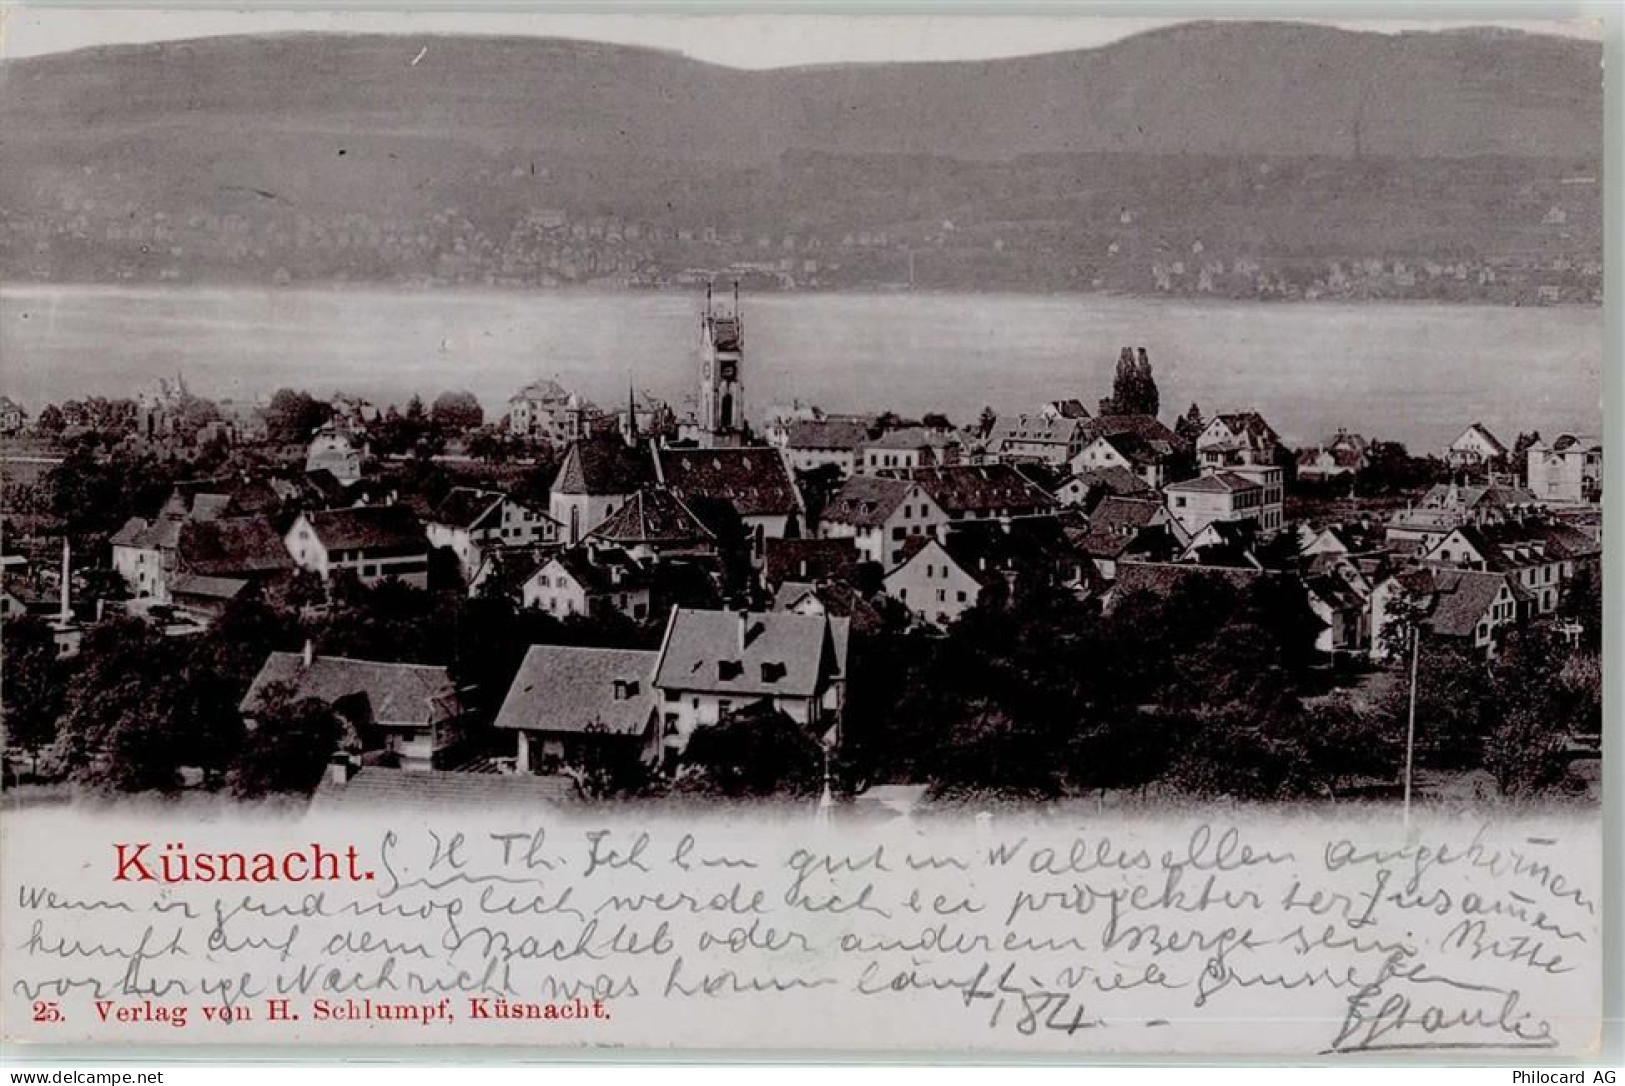 Küsnacht. G. H Th. Ich bin gut in Wallisellen angekommen
Wenn irgend möglich werde ich bei projektirter Zusamen
kunft auf dem Bachteb oder anderem Berge sein. Bitte
vorherige Nachricht was kom läuft. viele Grüsse
25. Verlag von H. Schlumpf, Küsnacht.
184.
delcampe.net
Philocard AG